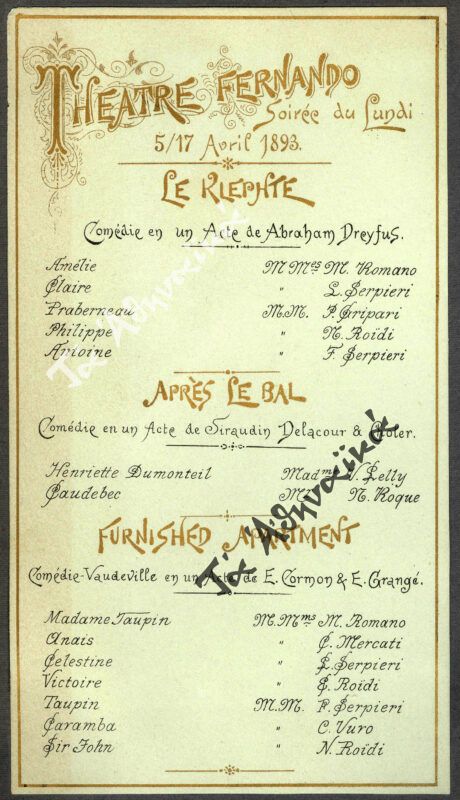 THEATRE FERNANDO
Soirée du Lundi
5/17 Avril 1893.
LE KLEPHTE
Comédie en un Acte de Abraham Dreyfus.
Amélie M Mes M. Romano
Claire " L. Serpieri
Praberneau M.M. P. Gripari
Philippe " N. Roïdi
Antoine " F. Serpieri
APRÈS LE BAL
Comédie en un Acte de Siraudin Delacour & Choler.
Henriette Dumonteil Madme V. Lelly
Caudebec N. Roque
FURNISHED APARTMENT
Comédie-Vaudeville en un Acte de E. Cormon & E. Grangé.
Madame Taupin M.Mms M. Romano
Anais " C. Mercati
Celestine " L. Serpieri
Victoire " E. Roïdi
Taupin M.M. F. Serpieri
Caramba " C. Vuro
Sir John " N. Roïdi
Τἀ Ἀθηναϊκά
Τἀ Ἀθηναϊκά